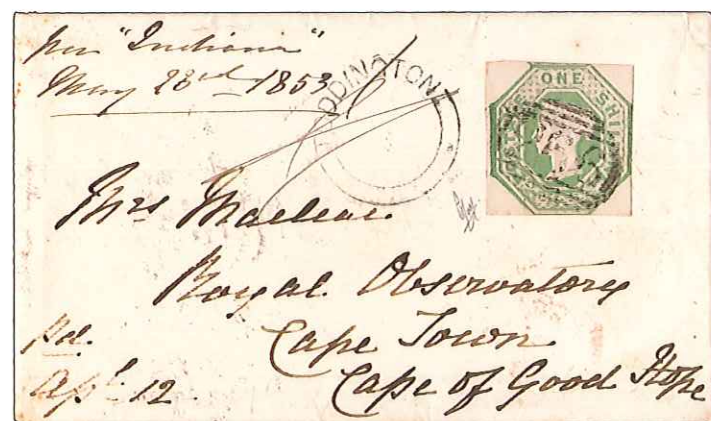 per "Indiana"
May 28rd 1853
ODDINGTON
ONE SHIL
Mrs Maclear
Royal Observatory
Cape Town
Cape of Good Hope